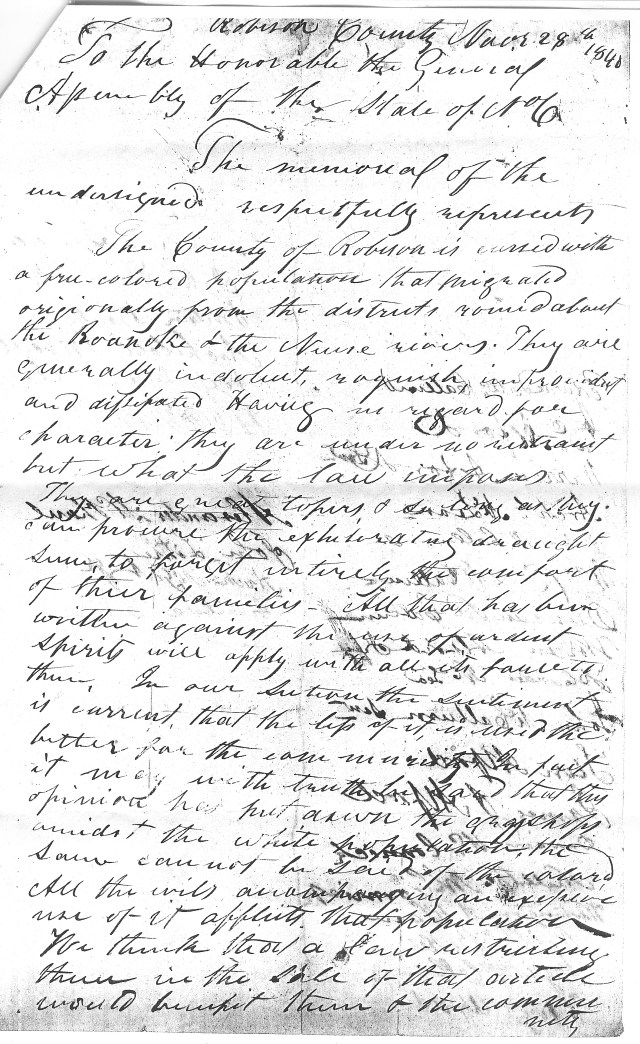 Robison County Novr 28th 1840
To the Honorable the General
Assembly of the State of No C
The memorial of the
undersigned respectfully represents
The County of Robison is cursed with
a free-colored population that migrated
origionally from the districts round about
the Roanoke & the Neuse rivers. They are
generally indolent, roguish improvident
and dissipated Having no regard for
character. they are under no restraint
but what the law imposes
They are great topers & so long as they
can procure the exhilerating draught
seem to forget intirely the comfort
of their families - All that has been
written against the use of ardent
spirits will apply with all its force to
them. In our section the sentiment
is current, that the less of it is used the
better for the community. In fact
it may with truth be said that this
opinion has put down the grogshops
amidst the white population, the
same cannot be said of the colored
All the evils accompanying an excessive
use of it afflicts that population
We think that a law restricting
them in the sale of that article
would benefit them & the commu
nity